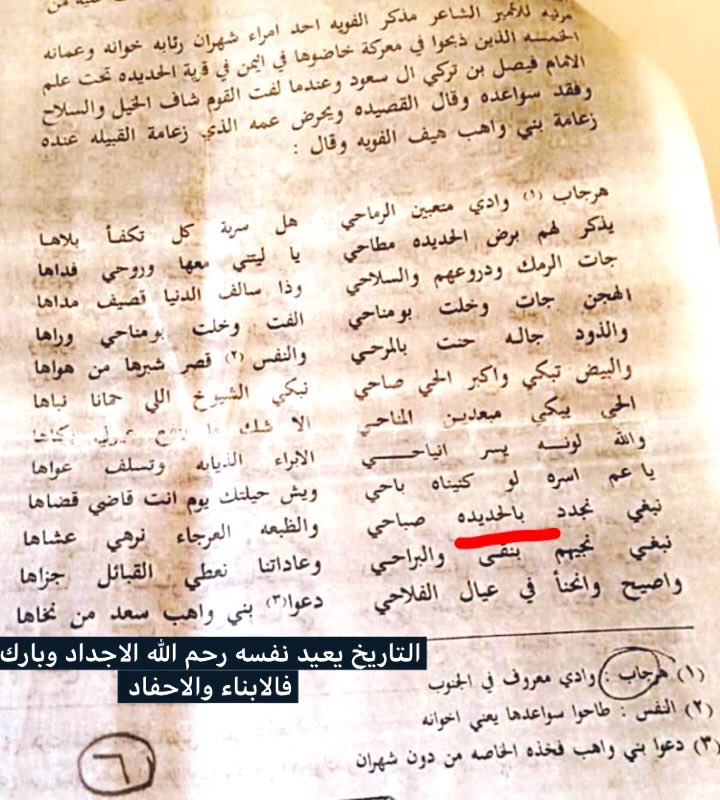 مرثيه للأمير الشاعر مذكر الفويه احد امراء شهران رثابه خوانه وعمانه
الخمسه الذين ذبحوا في معركة خاضوها في اليمن في قرية الحديده تحت علم
الامام فيصل بن تركي ال سعود وعندما لفت القوم شاف الخيل والسلاح
وفقد سواعده وقال القصيده ويحرض عمه الذي زعامة القبيله عنده
زعامة بني واهب هيف الفويه وقال :
هرجاب (١) وادي متعبين الرماحي هل سربة كل تكفأ بلاها
يذكر لهم برض الحديده مطاحي يا ليتني معها وروحي فداها
جات الرمك ودروعهم والسلاحي وذا سالف الدنيا قصيف مداها
الهجن جات وخلت بومناحي الفت وخلت بومناحي وراها
والذود جاله حنت بالمرحي والنفس (٢) قصر شبرها من هواها
والبيض تبكي واكبر الحي صاحي نبكي الشيوخ اللي حمانا نباها
الحي يبكي مبعدين المناحي الا شك ما
والله لونه يسر انباحي الابراء الذيابه وتسلف عواها
يا عم اسره لو كنيناه باحي ويش حيلتك يوم انت قاضي قضاها
نبغي نجدد بالحديده صباحي والظبعه العرجاء نرهي عشاها
نبغي نجيهم بنقى والبراحي وعاداتنا نعطي القبائل جزاها
واصيح وانخأ في عيال الفلاحي دعوا(٣) بني واهب سعد من نخاها
التاريخ يعيد نفسه رحم الله الاجداد وبارك
فالابناء والاحفاد
(١) هرجاب : وادي معروف في الجنوب
(٢) النفس : طاحوا سواعدها يعني اخوانه
(٣) دعوا بني واهب فخذه الخاصه من دون شهران
٦